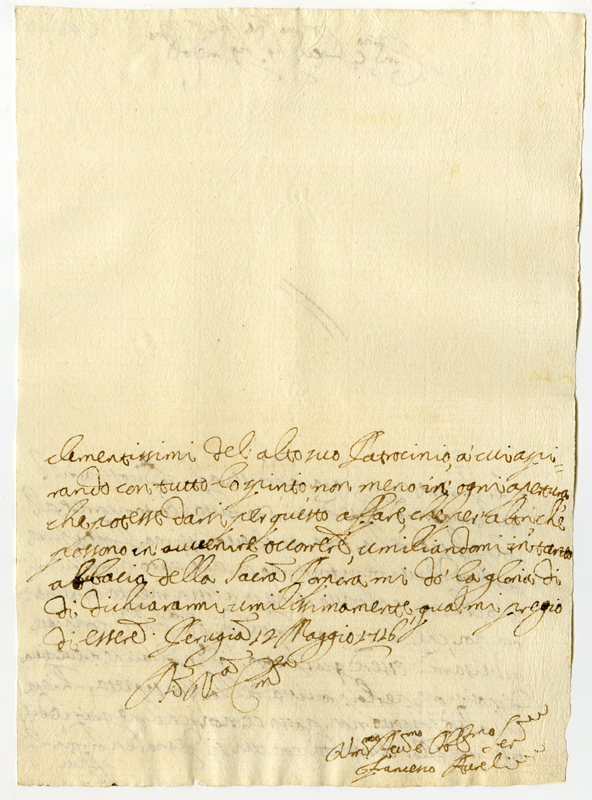 clementissimi del alto suo Patrocinio, à cui aspi=
rando con tutto lo spirito non meno in ogni apertura,
che potesse darsi per questo affare, che per altri che
possono in avvenire occorrere, umiliandomi intanto
al bacio della Sacra Porpora mi dò la gloria di
di dichiararmi umilissimamente, qual mi pregio
di essere. Perugia 12 Maggio 1716
Um.mo Dev.mo Obb.mo Ser.re
Francesco Aureli